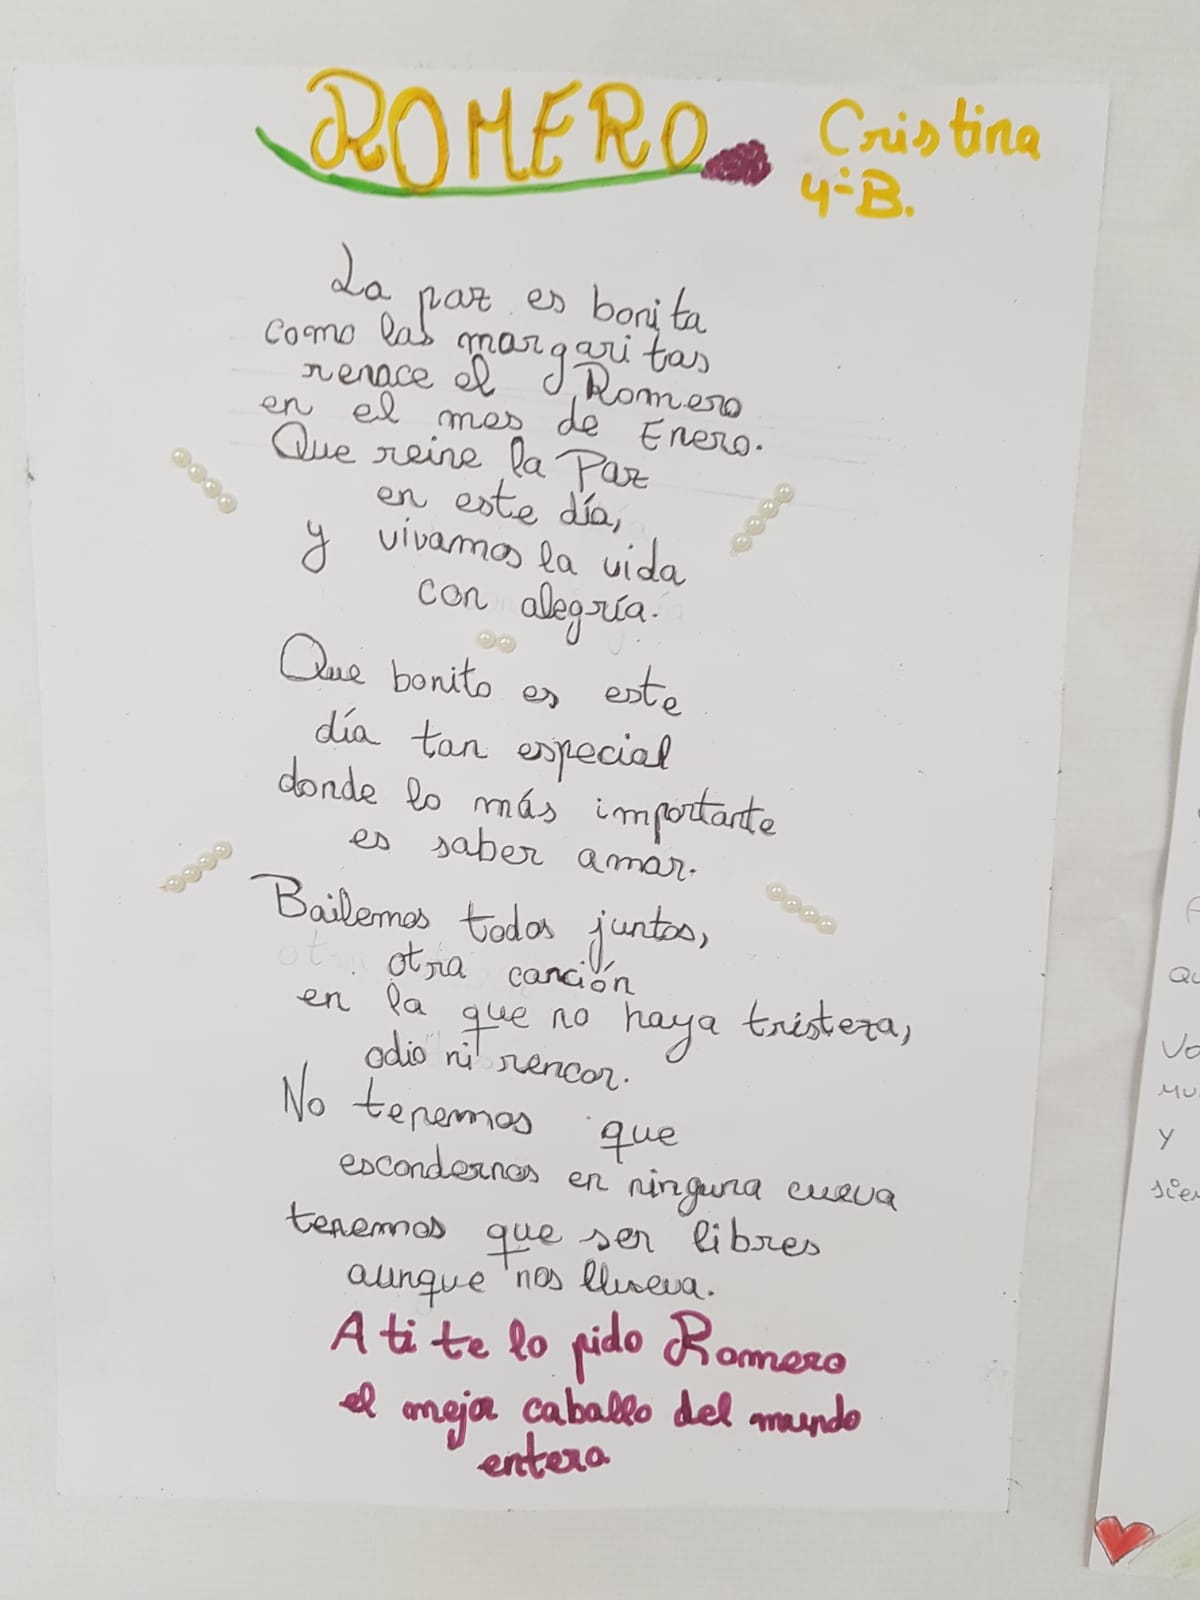 ROMERO
Cristina
4ºB.
La paz es bonita
como las margaritas
renace el Romero
en el mes de Enero.
Que reine la Paz
en este día,
y vivamos la vida
con alegría.
Que bonito es este
día tan especial
donde lo más importante
es saber amar.
Bailemos todos juntos,
otra canción
en la que no haya tristeza,
odio ni rencor.
No tenemos que
escondernos en ninguna cueva
tenemos que ser libres
aunque nos llueva.
A ti te lo pido Romero
el mejor caballo del mundo
entero
Y